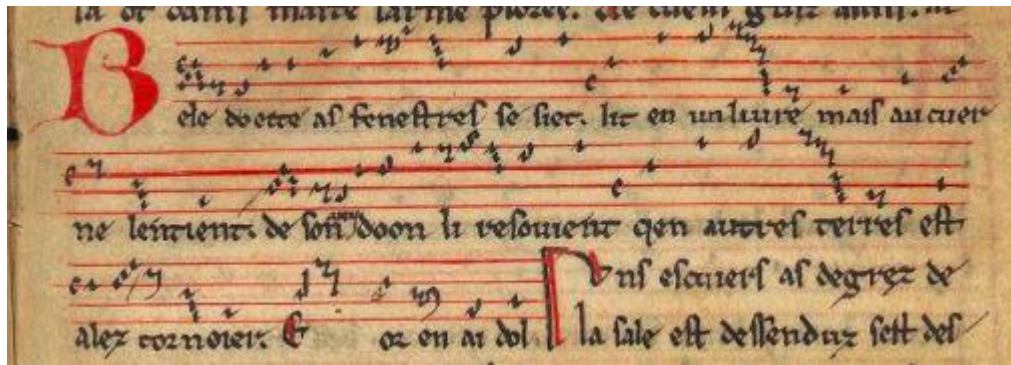 Bele doette as fenestres se siet. lit en un liure mais au cuer
ne lentient. de son ami doon li resouient qen autres terres est
alez tornoier. E or en ai dol. Uns escuiers as degrez de
la sale est dessenduz sest des